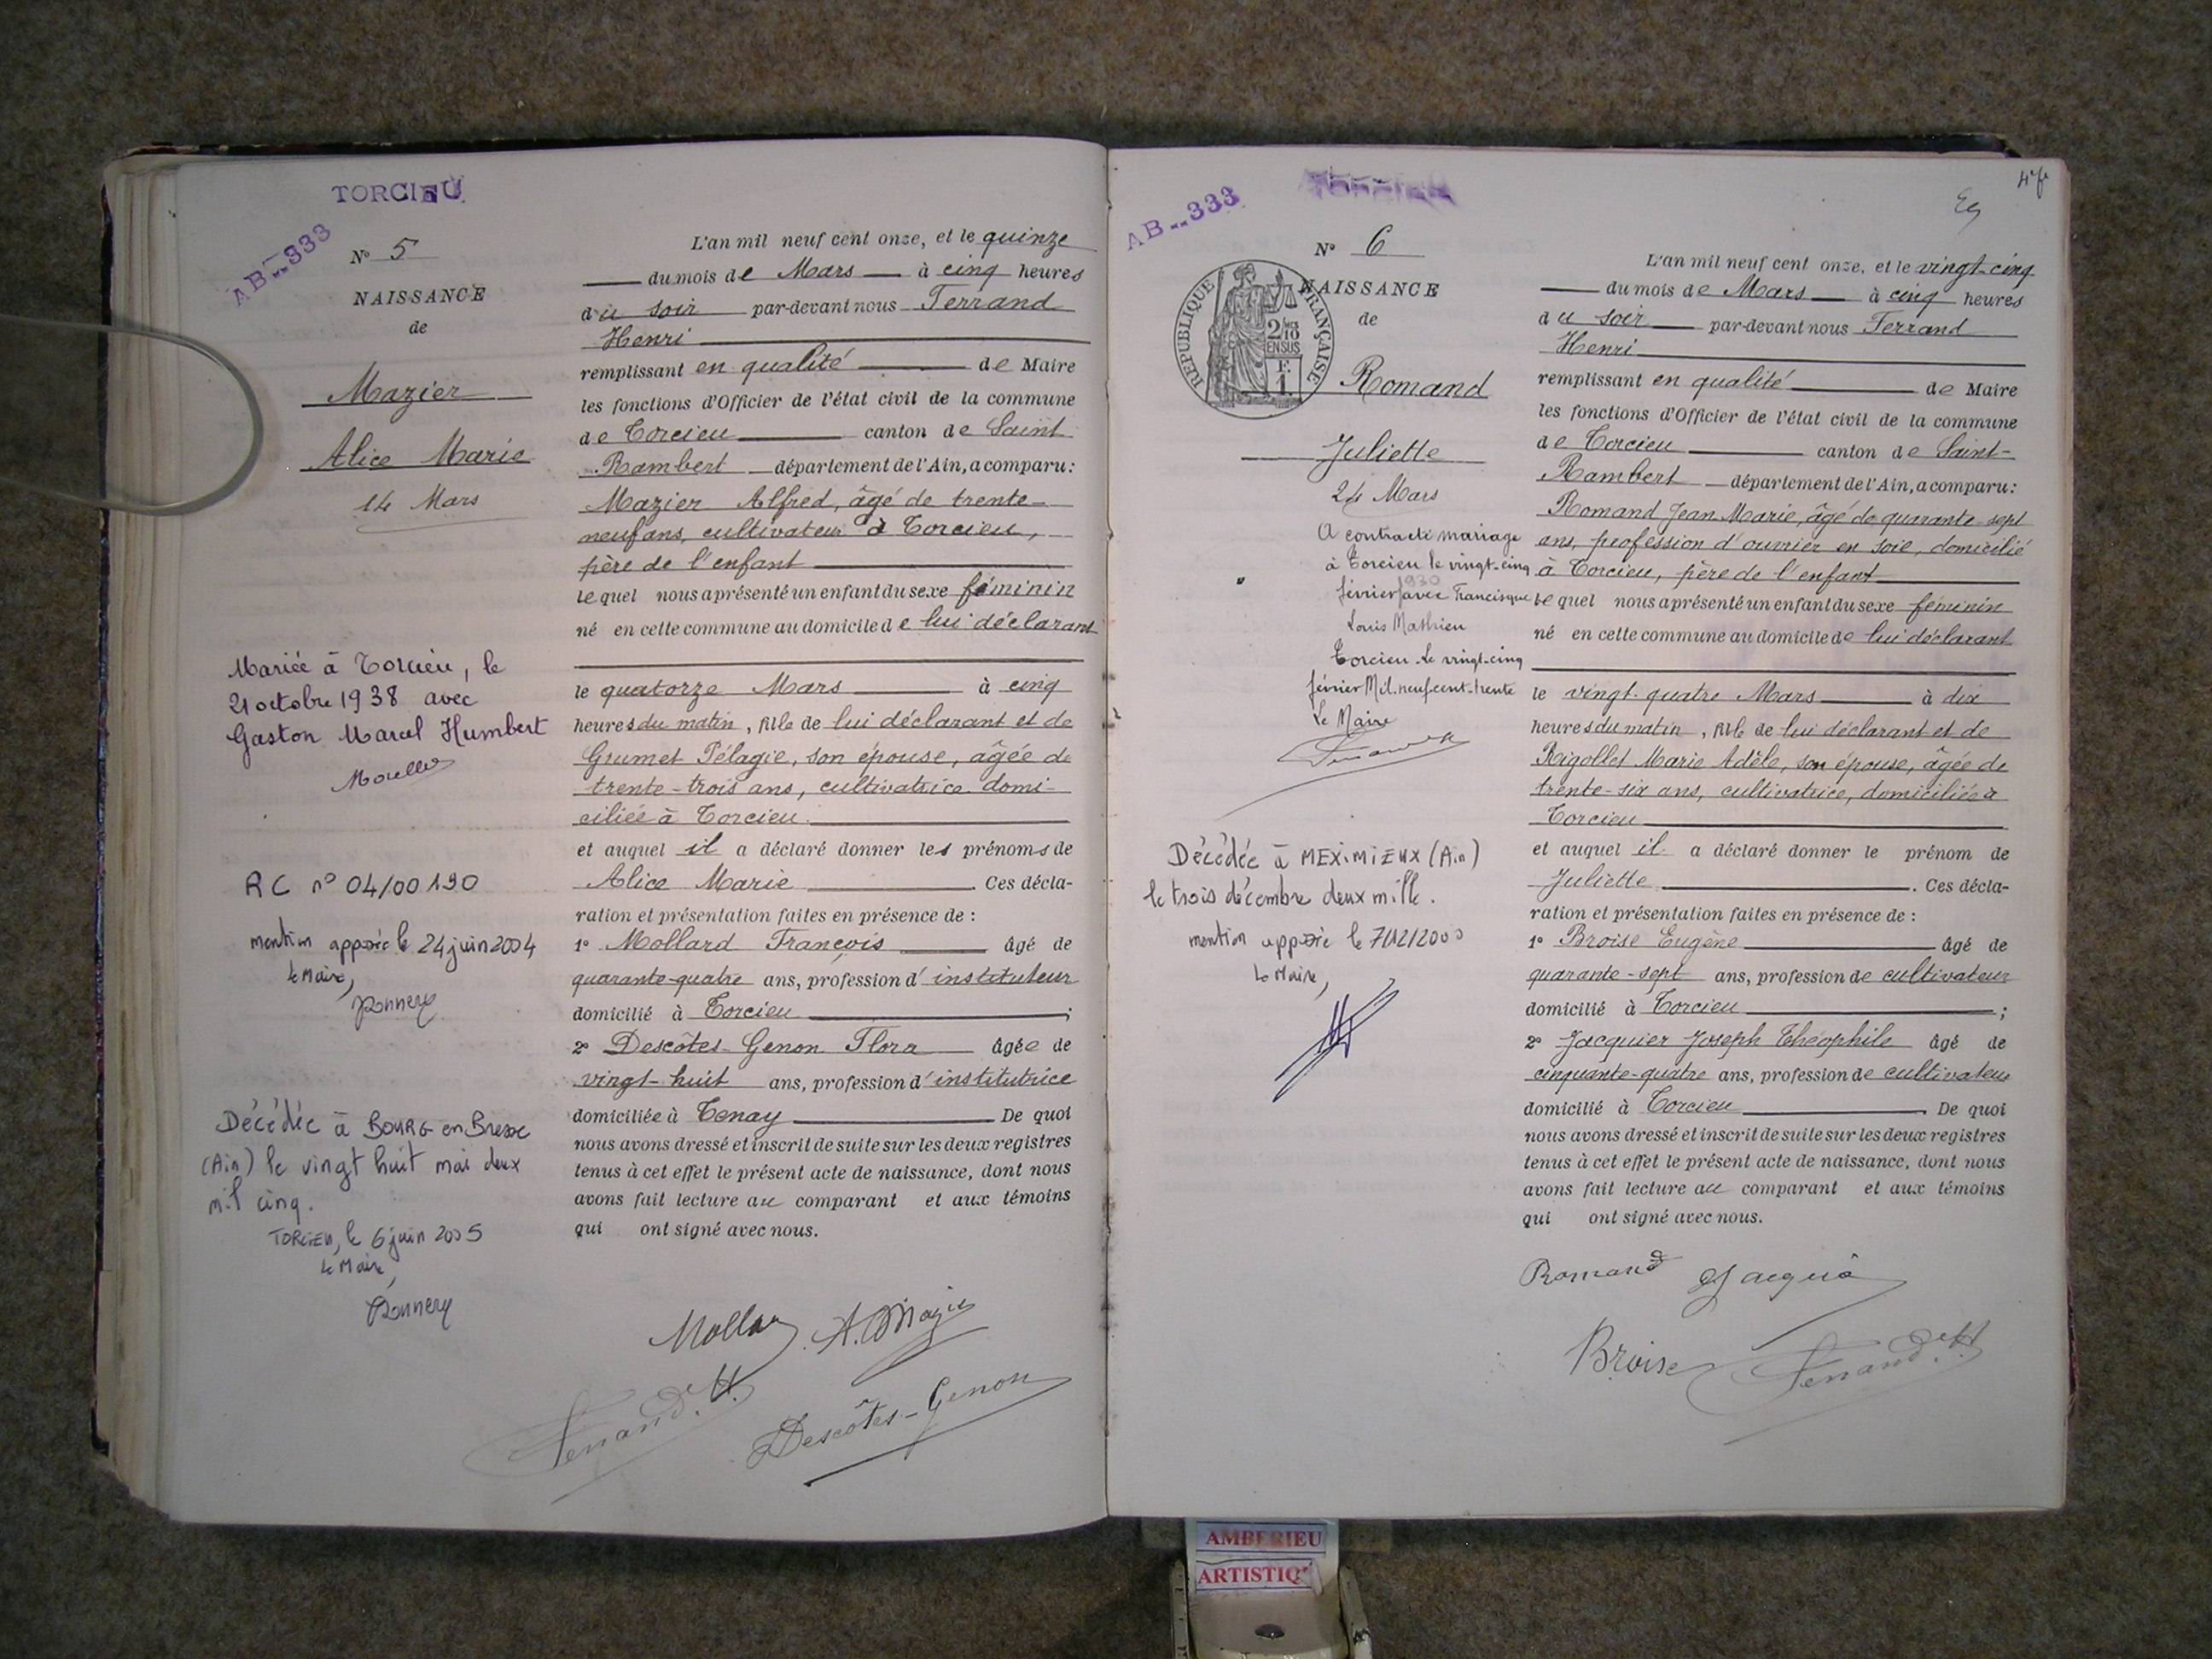 TORCIEU
AB--333
N° 5
NAISSANCE
de
Mazier
Alice Marie
14 Mars
Mariée à Torcieu, le
21 octobre 1938 avec
Gaston Marcel Humbert
RC n° 04/00130
mention apposée le 24 juin 2004
le Maire,
Décédée à BOURG en Bresse
(Ain) le vingt huit mai deux
mil cinq.
TORCIEU, le 6 juin 2005
le Maire,
L'an mil neuf cent onze, et le quinze
du mois de Mars à cinq heures
du soir par-devant nous Ferrand
Henri
remplissant en qualité de Maire
les fonctions d'Officier de l'état civil de la commune
de Torcieu canton de Saint
Rambert département de l'Ain, a comparu:
Mazier Alfred, âgé de trente-
neuf ans, cultivateur à Torcieu,
père de l'enfant
lequel nous a présenté un enfant du sexe féminin
né en cette commune au domicile de lui déclarant
le quatorze Mars à cinq
heures du matin, fille de lui déclarant et de
Grumet Pélagie, son épouse, âgée de
trente-trois ans, cultivatrice domi-
ciliée à Torcieu
et auquel il a déclaré donner les prénoms de
Alice Marie. Ces décla-
ration et présentation faites en présence de :
1° Mollard François âgé de
quarante-quatre ans, profession d'instituteur
domicilié à Torcieu ;
2° Descôtes-Genon Flora âgée de
vingt-huit ans, profession d'institutrice
domiciliée à Tenay De quoi
nous avons dressé et inscrit de suite sur les deux registres
tenus à cet effet le présent acte de naissance, dont nous
avons fait lecture au comparant et aux témoins
qui ont signé avec nous.
Mollard A. Mazier
Ferrand. H.
Descôtes-Genon
AB--333
N° 6
NAISSANCE
de
RÉPUBLIQUE FRANÇAISE
2/10
EN SUS
F.
1.
Romand
Juliette
24 Mars
A contracté mariage
à Torcieu le vingt-cinq
février 1930 avec Francisque
Louis Mathieu
Torcieu le vingt-cinq
février Mil-neuf-cent-trente
Le Maire
Décédée à MEXIMIEUX (Ain)
le trois décembre deux mille.
mention apposée le 7/12/2000
le Maire,
4e f
L'an mil neuf cent onze, et le vingt-cinq
du mois de Mars à cinq heures
du soir par-devant nous Ferrand
Henri
remplissant en qualité de Maire
les fonctions d'Officier de l'état civil de la commune
de Torcieu canton de Saint-
Rambert département de l'Ain, a comparu:
Romand Jean Marie, âgé de quarante-sept
ans, profession d'ouvrier en soie, domicilié
à Torcieu, père de l'enfant
lequel nous a présenté un enfant du sexe féminin
né en cette commune au domicile de lui déclarant
le vingt-quatre Mars à dix
heures du matin, fille de lui déclarant et de
Rigollet Marie Adèle, son épouse, âgée de
trente-six ans, cultivatrice, domiciliée à
Torcieu
et auquel il a déclaré donner le prénom de
Juliette. Ces décla-
ration et présentation faites en présence de :
1° Broise Eugène âgé de
quarante-sept ans, profession de cultivateur
domicilié à Torcieu ;
2° Jacquier Joseph Théophile âgé de
cinquante-quatre ans, profession de cultivateur
domicilié à Torcieu. De quoi
nous avons dressé et inscrit de suite sur les deux registres
tenus à cet effet le présent acte de naissance, dont nous
avons fait lecture au comparant et aux témoins
qui ont signé avec nous.
Romand Jacquier
Broise Ferrand. H.
AMBERIEU
ARTISTIQ